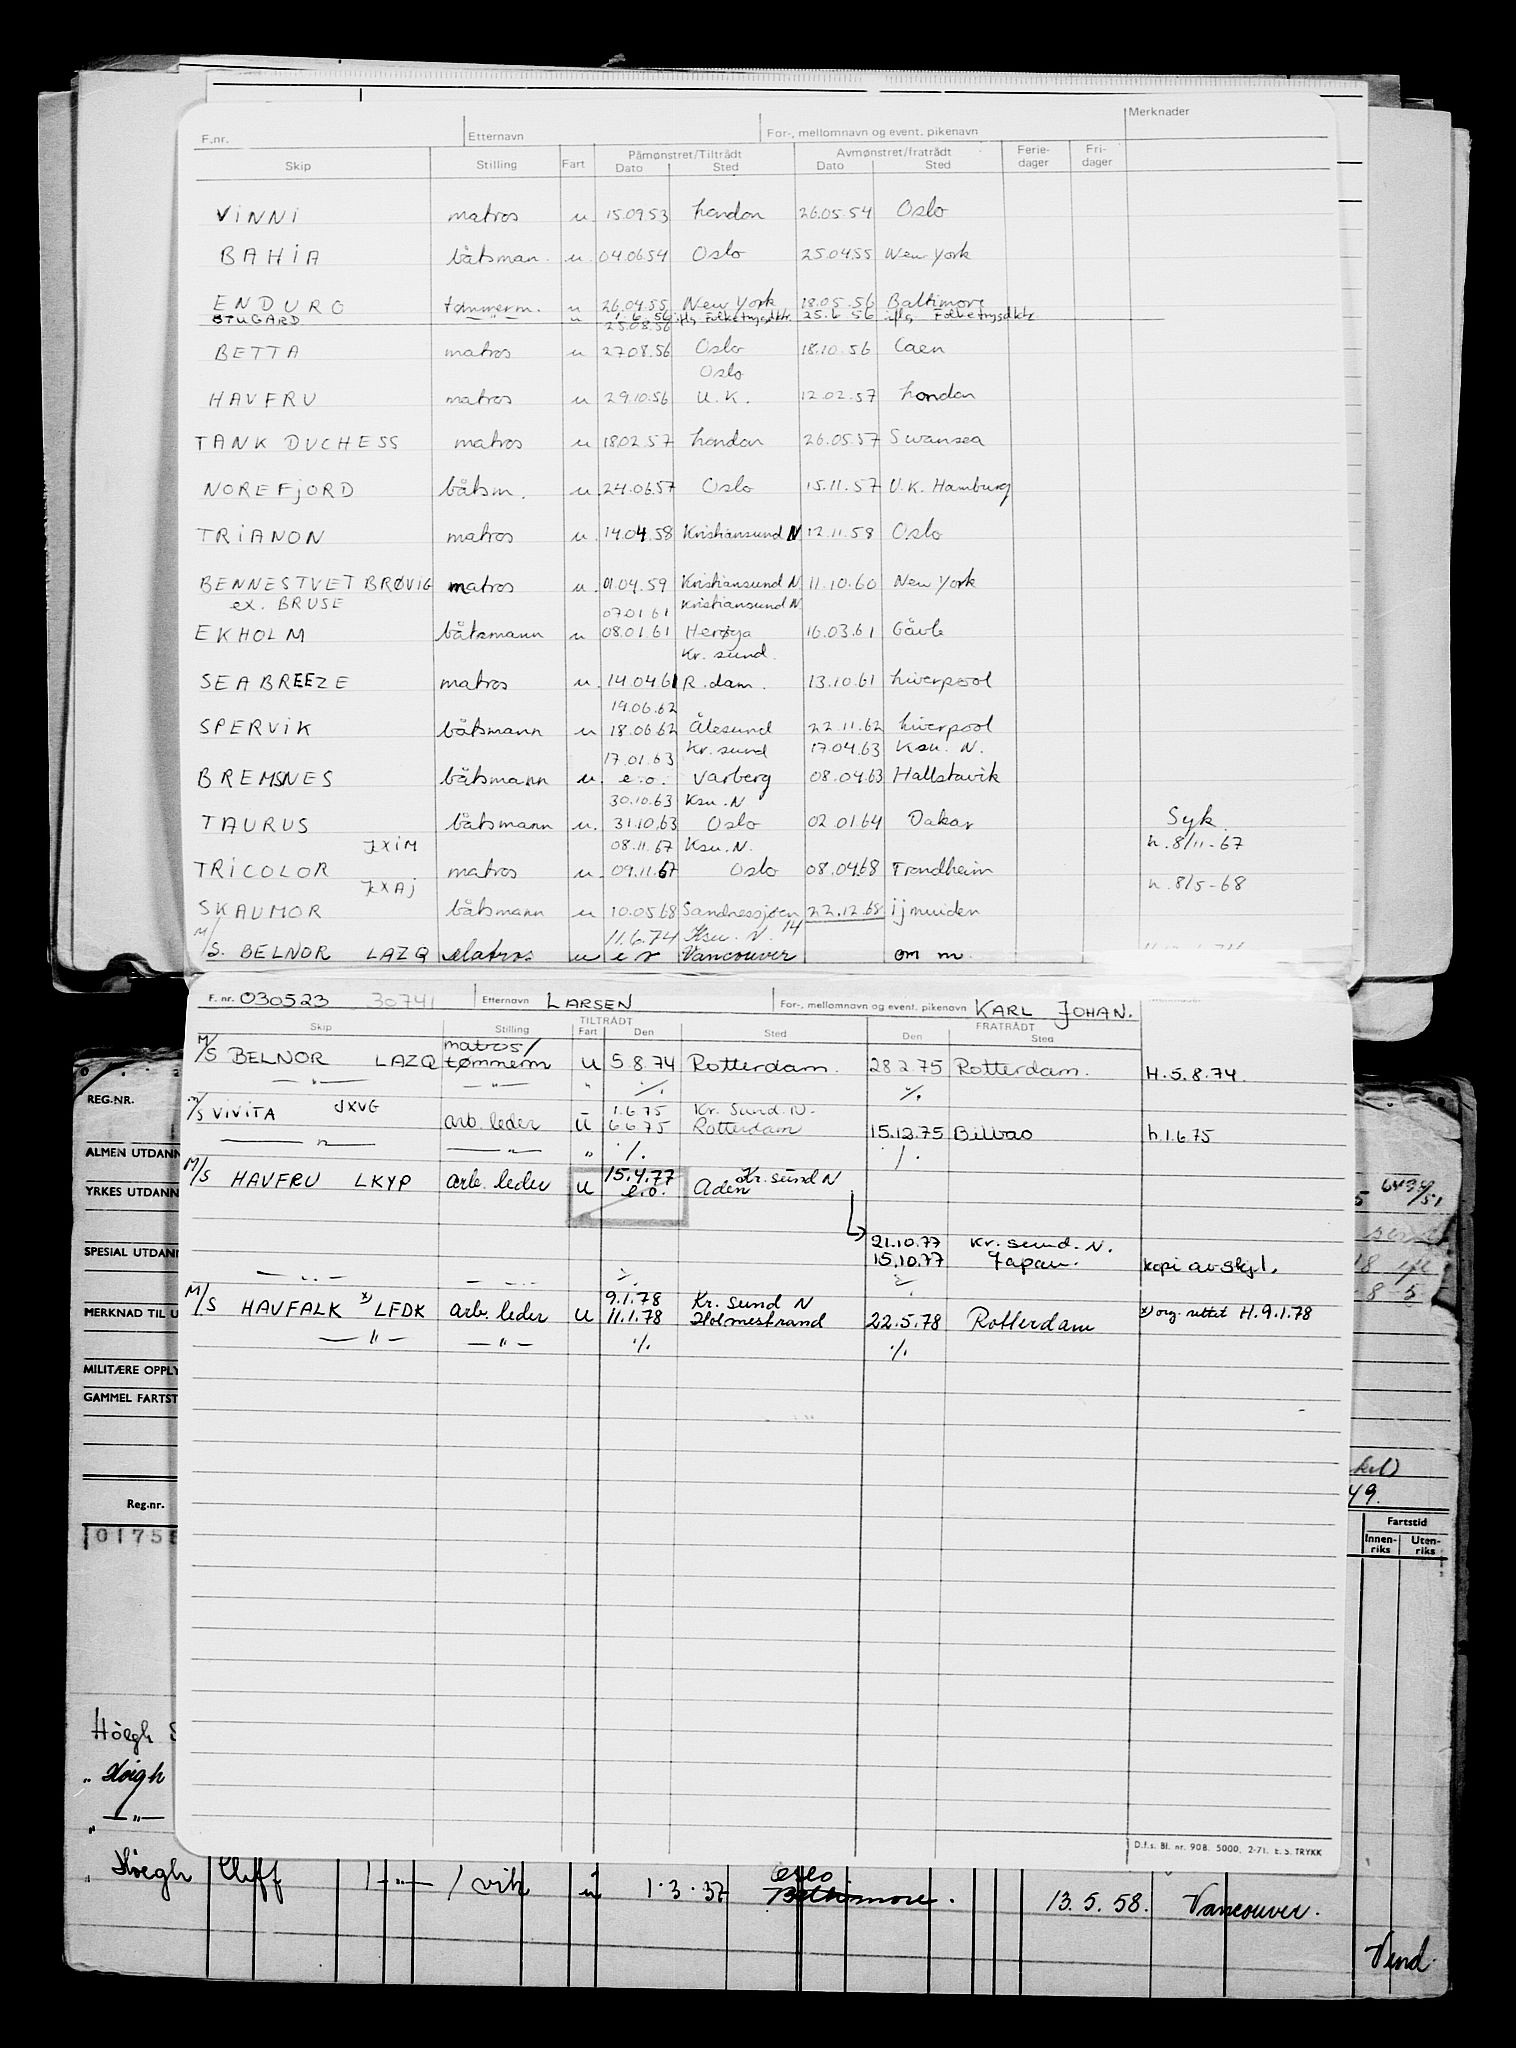 Merknader
F.nr. Etternavn For-, mellomnavn og event. pikenavn
Skip Stilling Fart Påmønstret/Tiltrådt Dato Sted Avmønstret/fratrådt Dato Sted Ferie-dager Fri-dager
VINNI matros u. 15.09.53 London 26.05.54 Oslo
BAHIA båtsman. u. 04.06.54 Oslo 25.04.55 New York
ENDURO tømmerm. u 26.04.55 New York 18.05.56 Baltimore
STUGARD —"— u 1.6.56 iflg Folketrygdktr. 25.6.56 iflg Folketrygdktr
25.08.56
BETTA matros u 27.08.56 Oslo 18.10.56 Caen
Oslo
HAVFRU matros u 29.10.56 U.K. 12.02.57 London
TANK DUCHESS matros u 18.02.57 London 26.05.57 Swansea
NOREFJORD båtsm. u. 24.06.57 Oslo 15.11.57 U.K. Hamburg
TRIANON matros u. 14.04.58 Kristiansund N 12.11.58 Oslo
BENNESTVET BRØVIG matros u. 01.04.59 Kristiansund N 11.10.60 New York
ex. BRUSE 07.01.61 Kristiansund N.
EKHOLM båtsmann u 08.01.61 Herøya 16.03.61 Gävle
Kr. sund.
SEABREEZE matros u. 14.04.61 R.dam. 13.10.61 Liverpool
19.06.62
SPERVIK båtsmann u 18.06.62 Ålesund 22.11.62 Liverpool
17.01.63 Kr. sund 17.04.63 Ksu. N.
BREMSNES båtsmann u. e.o. Varberg 08.04.63 Hallstavik
30.10.63 Ksu. N
TAURUS båtsmann u. 31.10.63 Oslo 02.01.64 Dakar Syk.
JXIM 08.11.67 Ksu. N. h. 8/11-67
TRICOLOR matros u. 09.11.67 Oslo 08.04.68 Trondheim
JXAJ h. 8/5-68
SKAUMOR båtsmann u 10.05.68 Sandnessjøen 22.12.68 Ijmuiden
11.6.74 Ksu. N. 14
M/S. BELNOR LAZQ Matros u Vancouver om m.
F. nr. 030523 30741 Etternavn LARSEN For-, mellomnavn og event. pikenavn KARL JOHAN.
Skip Stilling TILTRÅDT Fart Den Sted FRATRÅDT Den Sted
matros/
M/S BELNOR LAZQ tømmerm u 5.8.74 Rotterdam. 28 2.75 Rotterdam. H. 5.8.74.
—"— —"— " ./. ./.
1.6.75 Kr. Sund. N.
M/S VIVITA JXVG arb. leder u 6.6.75 Rotterdam 15.12.75 Bilbao h.1.6.75
—"— —"— " ./. ./.
15.4.77 Kr. sund N
M/S HAVFRU LKYP arb. leder u e.o. Aden
21.10.77 Kr. sund. N.
15.10.77 Japan. kopi av skjl.
—"— —"— ./. ./.
9.1.78 Kr. Sund N
M/S HAVFALK x) LFDK arb. leder u 11.1.78 Holmestrand 22.5.78 Rotterdam x) org. rettet H.9.1.78
—"— —"— ./. ./.
D.f.s. Bl. nr. 908. 5000. 2-71. E.S. TRYKK
REG.NR.
ALMEN UTDANN
YRKES UTDANN
SPESIAL UTDANN
MERKNAD TIL U
MILITÆRE OPPLY
GAMMEL FARTST
49.
Reg.nr. Fartstid
Innen-riks Uten-riks
0175
Høegh S
" Høegh
" —"—
" Høegh Cliff —"— / vik u 1.3.37 Oslo Baltimore. 13.5.58. Vancouver.
Vend.